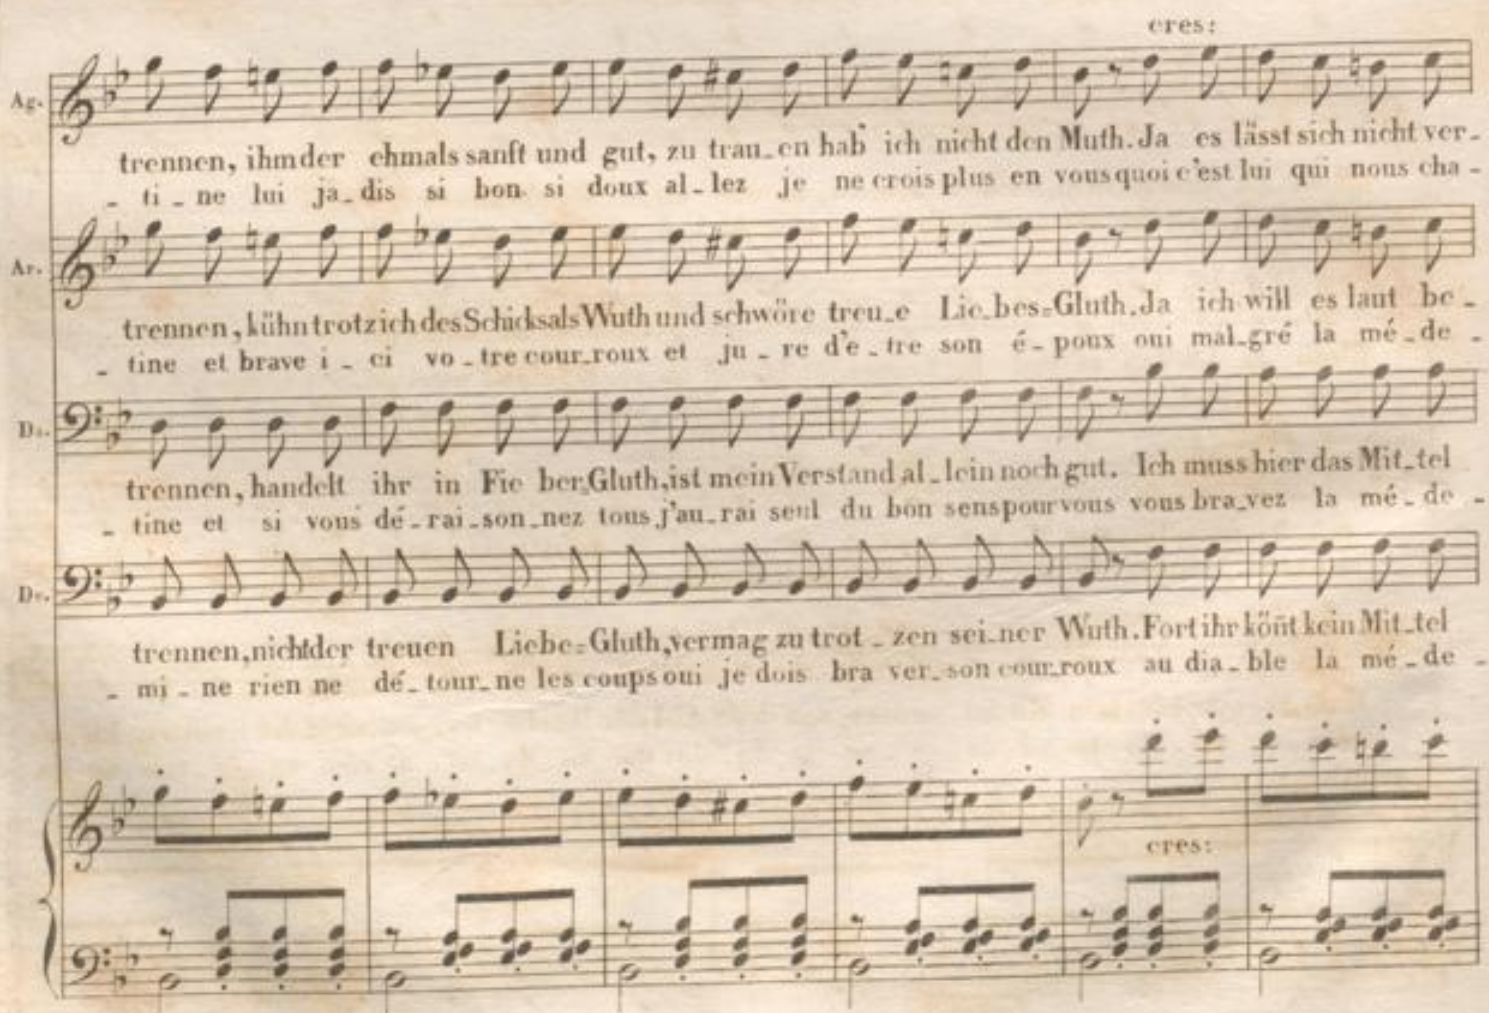 cres:
Ag.
trennen, ihm der ehmals sanft und gut, zu trau_en hab' ich nicht den Muth. Ja es lässt sich nicht ver_
_ ti _ ne lui ja_dis si bon si doux al_lez je ne crois plus en vous quoi c'est lui qui nous cha _
Ar.
trennen, kühn trotz ich des Schicksals Wuth und schwöre treu_e Lie_bes=Gluth. Ja ich will es laut be _
_ tine et brave i _ ci vo _ tre cour_roux et ju _ re d'e _ tre son é _ poux oui mal_gré la mé _ de _
trennen, handelt ihr in Fie ber=Gluth, ist mein Verstand al_lein noch gut. Ich muss hier das Mit_tel
_ tine et si vous dé _ rai _ son _ nez tous j'au_rai seul du bon sens pour vous vous bra_vez la mé _ de _
trennen, nicht der treuen Liebe=Gluth, vermag zu trot _ zen sei_ner Wuth. Fort ihr kön̄t kein Mit_tel
_ mi _ ne rien ne dé _ tour_ne les coups oui je dois bra ver_son cour_roux au dia _ ble la mé _ de _
cres: